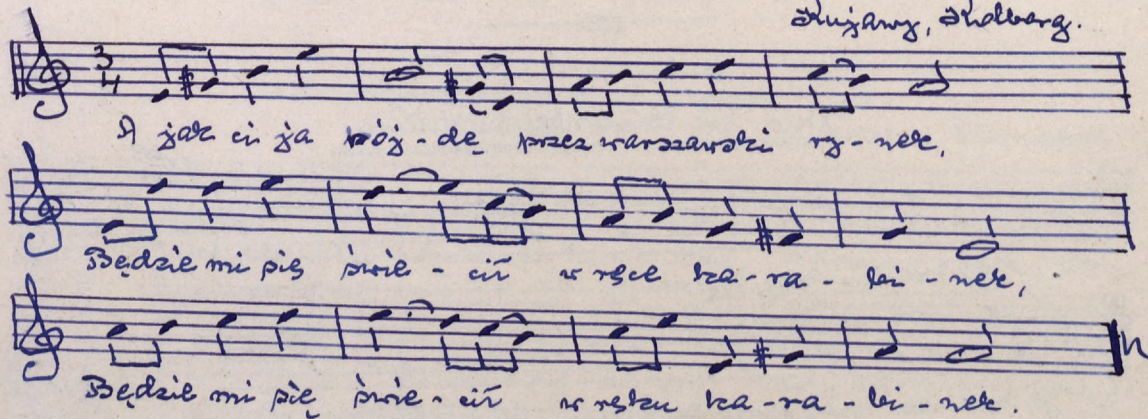 Kujawy, Kolberg.
3/4
A jak ci ja pój-dę przez warszawski ry-nek,
Będzie mi się świe-cił w ręce ka-ra-bi-nek,
Będzie mi się świe-cił w ręku ka-ra-bi-nek.